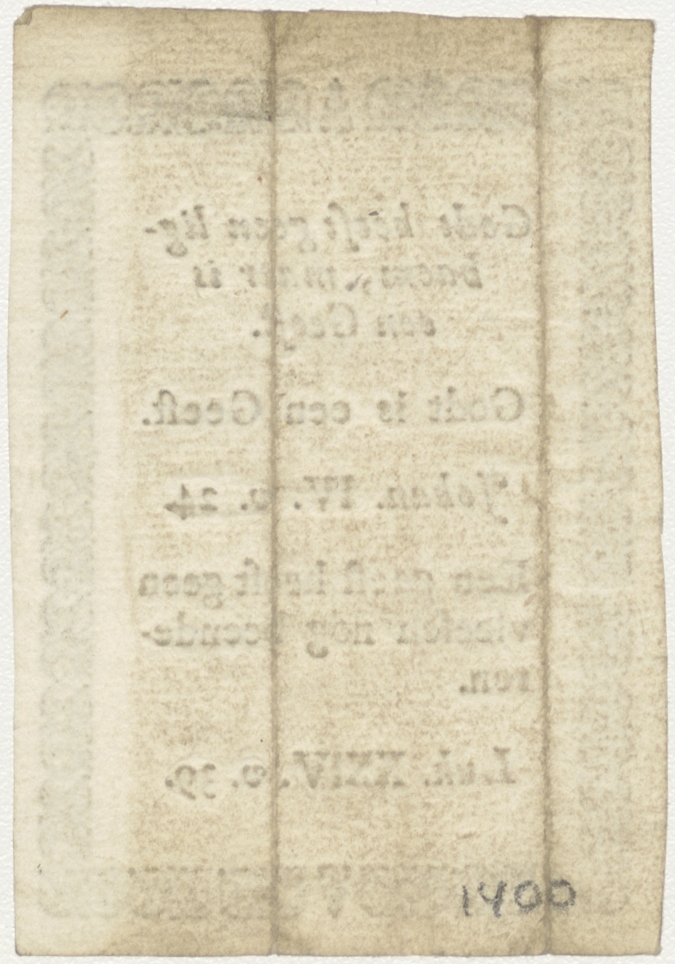 Godt heeft geen lig-
baem, maer is
een Geest.
Godt is een Geest.
Johan. IV. v. 24.
geest heeft geen
vleesch nog beende-
ren.
Luk. XXIV. v. 39.
1400